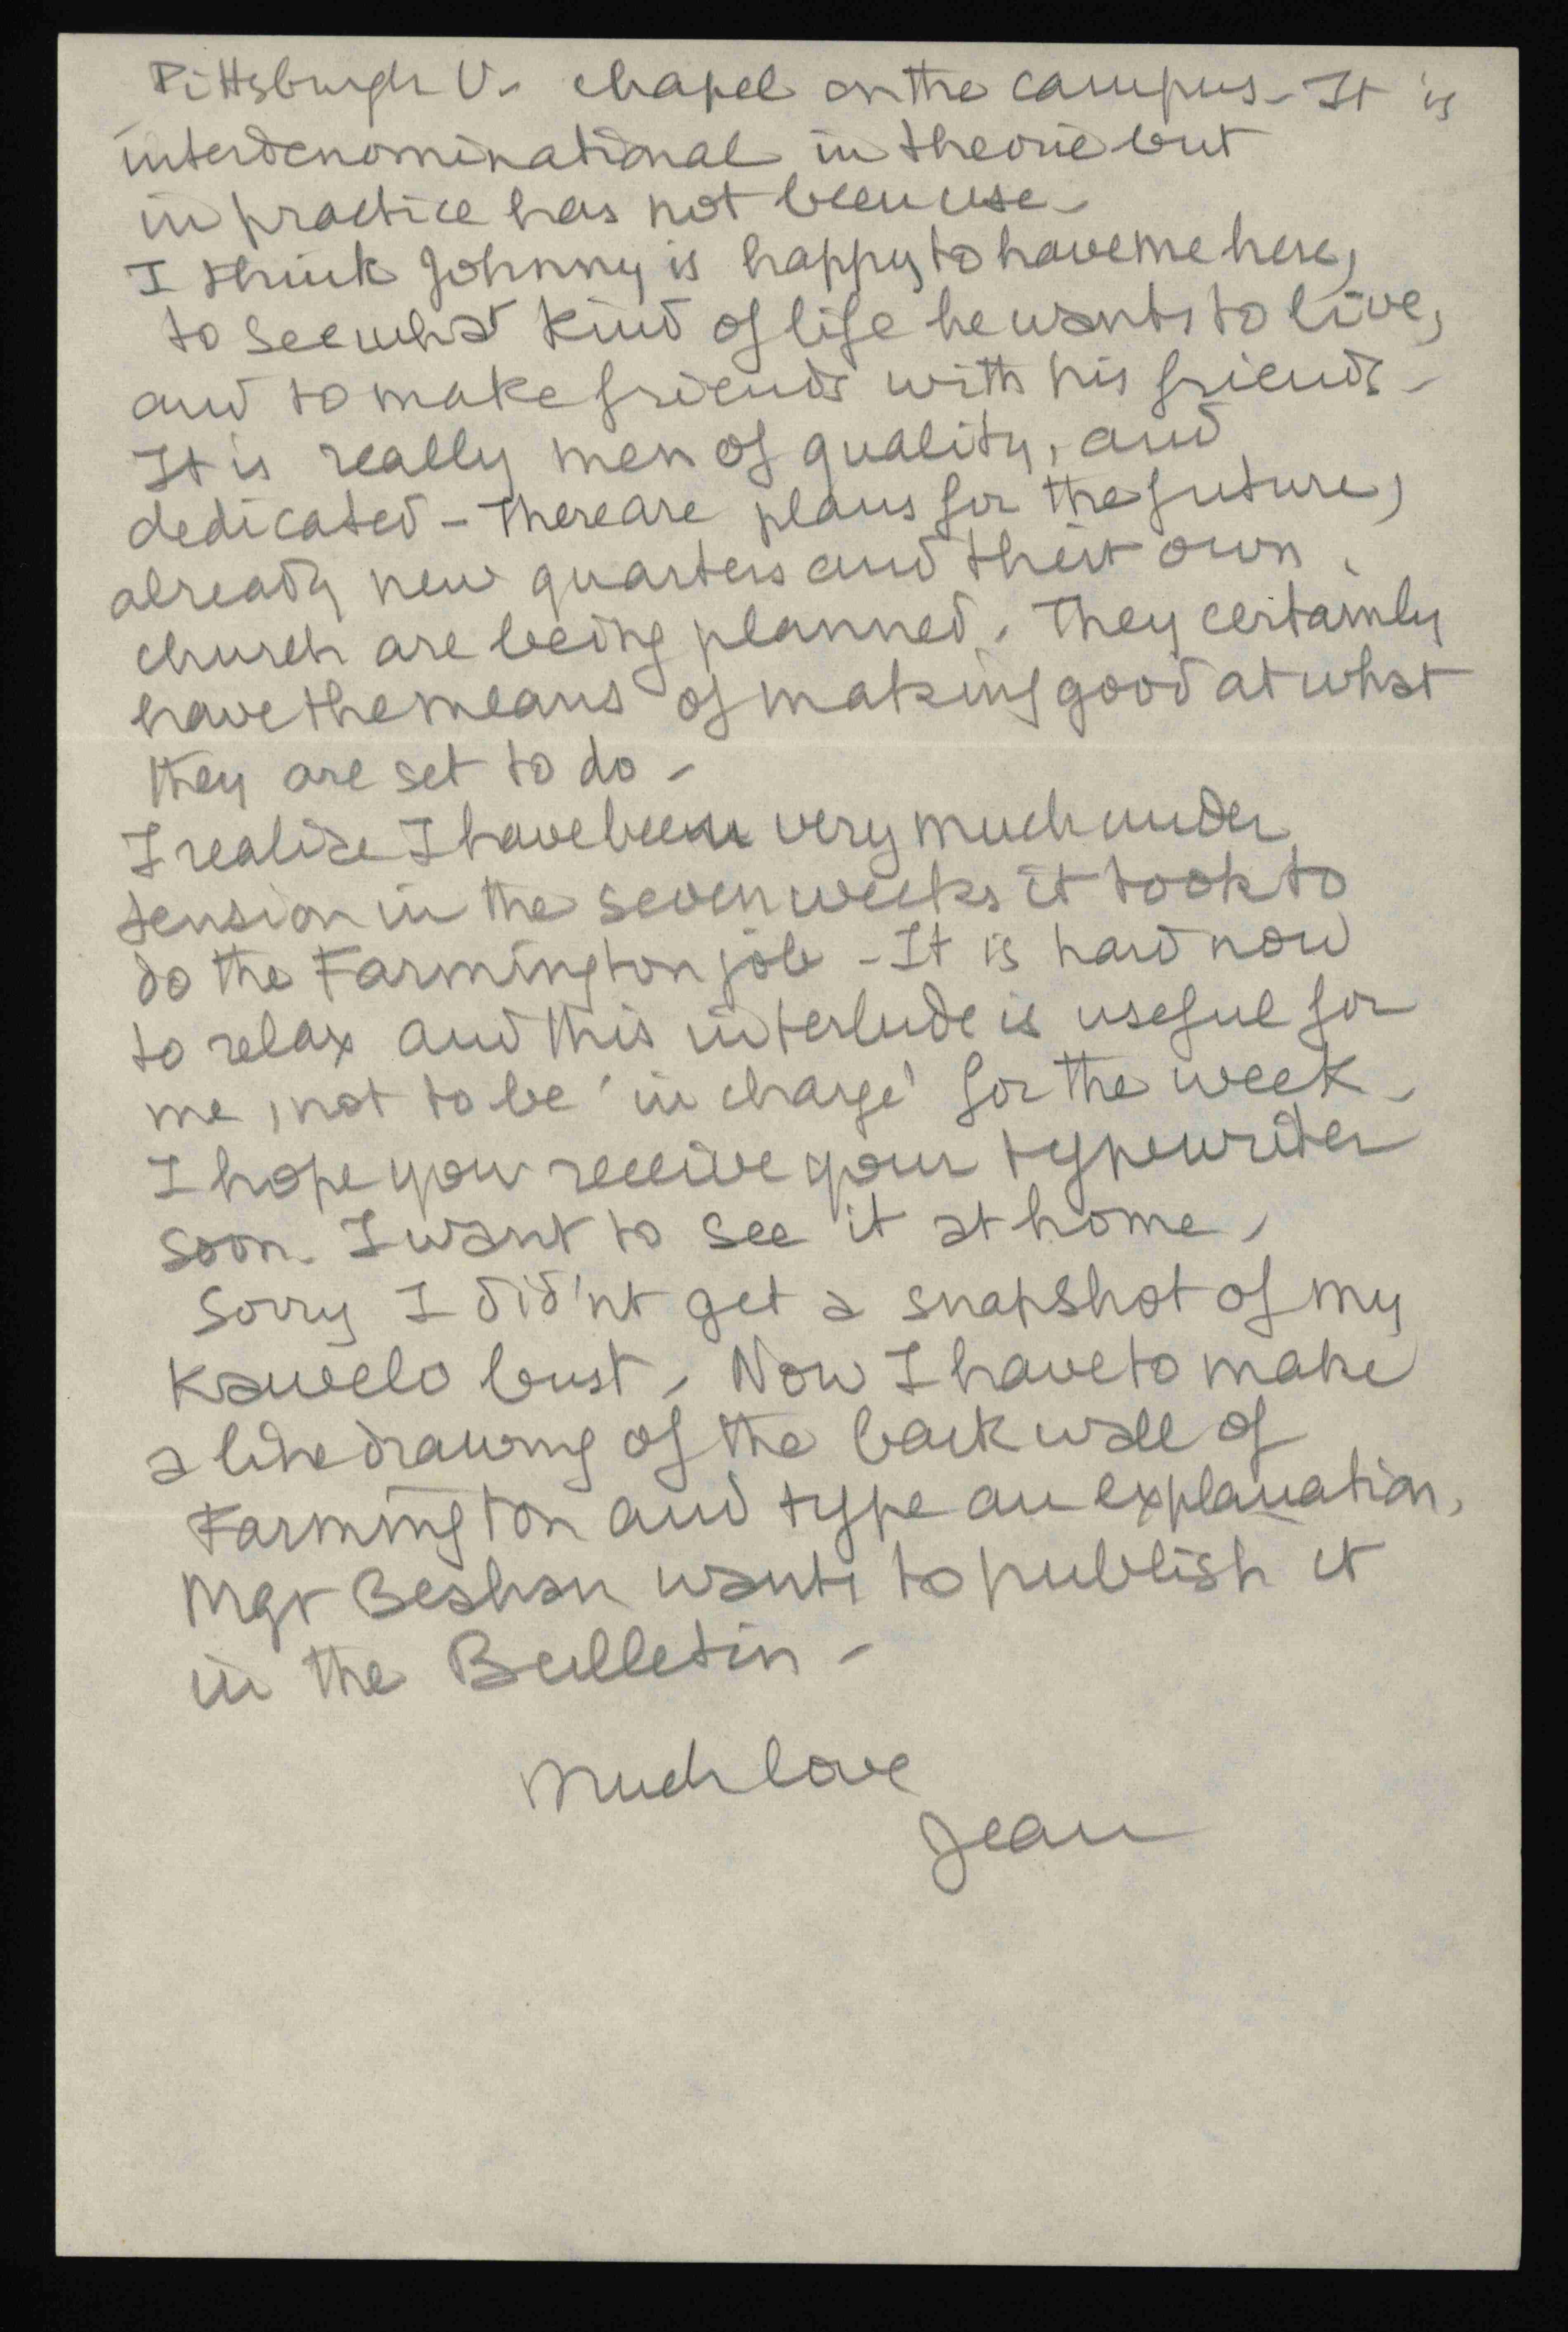 Pittsburgh U. chapel on the campus - It is
interdenominational in theorie but
in practice has not been use -
I think Johnny is happy to have me here,
to see what kind of life he wants to live,
and to make friends with his friends -
It is really men of quality, and
dedicated - There are plans for the future,
already new quarters and their own
church are being planned. They certainly
have the means of making good at what
they are set to do -
I realise I have been very much under
tension in the seven weeks it took to
do the Farmington job - It is hard now
to relax and this interlude is useful for
me, not to be 'in charge' for the week -
I hope you receive your typewriter
soon. I want to see it at home.
Sorry I did'nt get a snapshot of my
Kawelo bust. Now I have to make
a line drawing of the back wall of
Farmington and type an explanation.
Mgr wants to publish it
in the Bulletin -
Much love
Jean